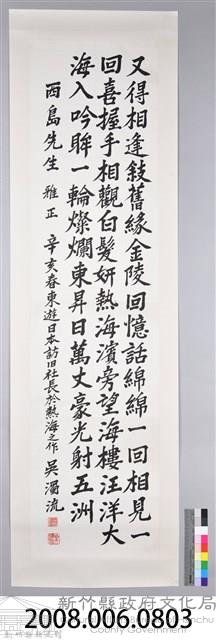 又得相逢敍舊緣金陵回憶話綿綿一回相見一
回喜握手相觀白髮妍熱海濱旁望海樓汪洋大
海入吟眸一輪燦爛東昇日萬丈豪光射五洲
西島先生 雅正 辛亥春東遊日本訪旧社長於熱海之作 吳濁流
新竹縣政府文化局
County Government
2008.006.0803